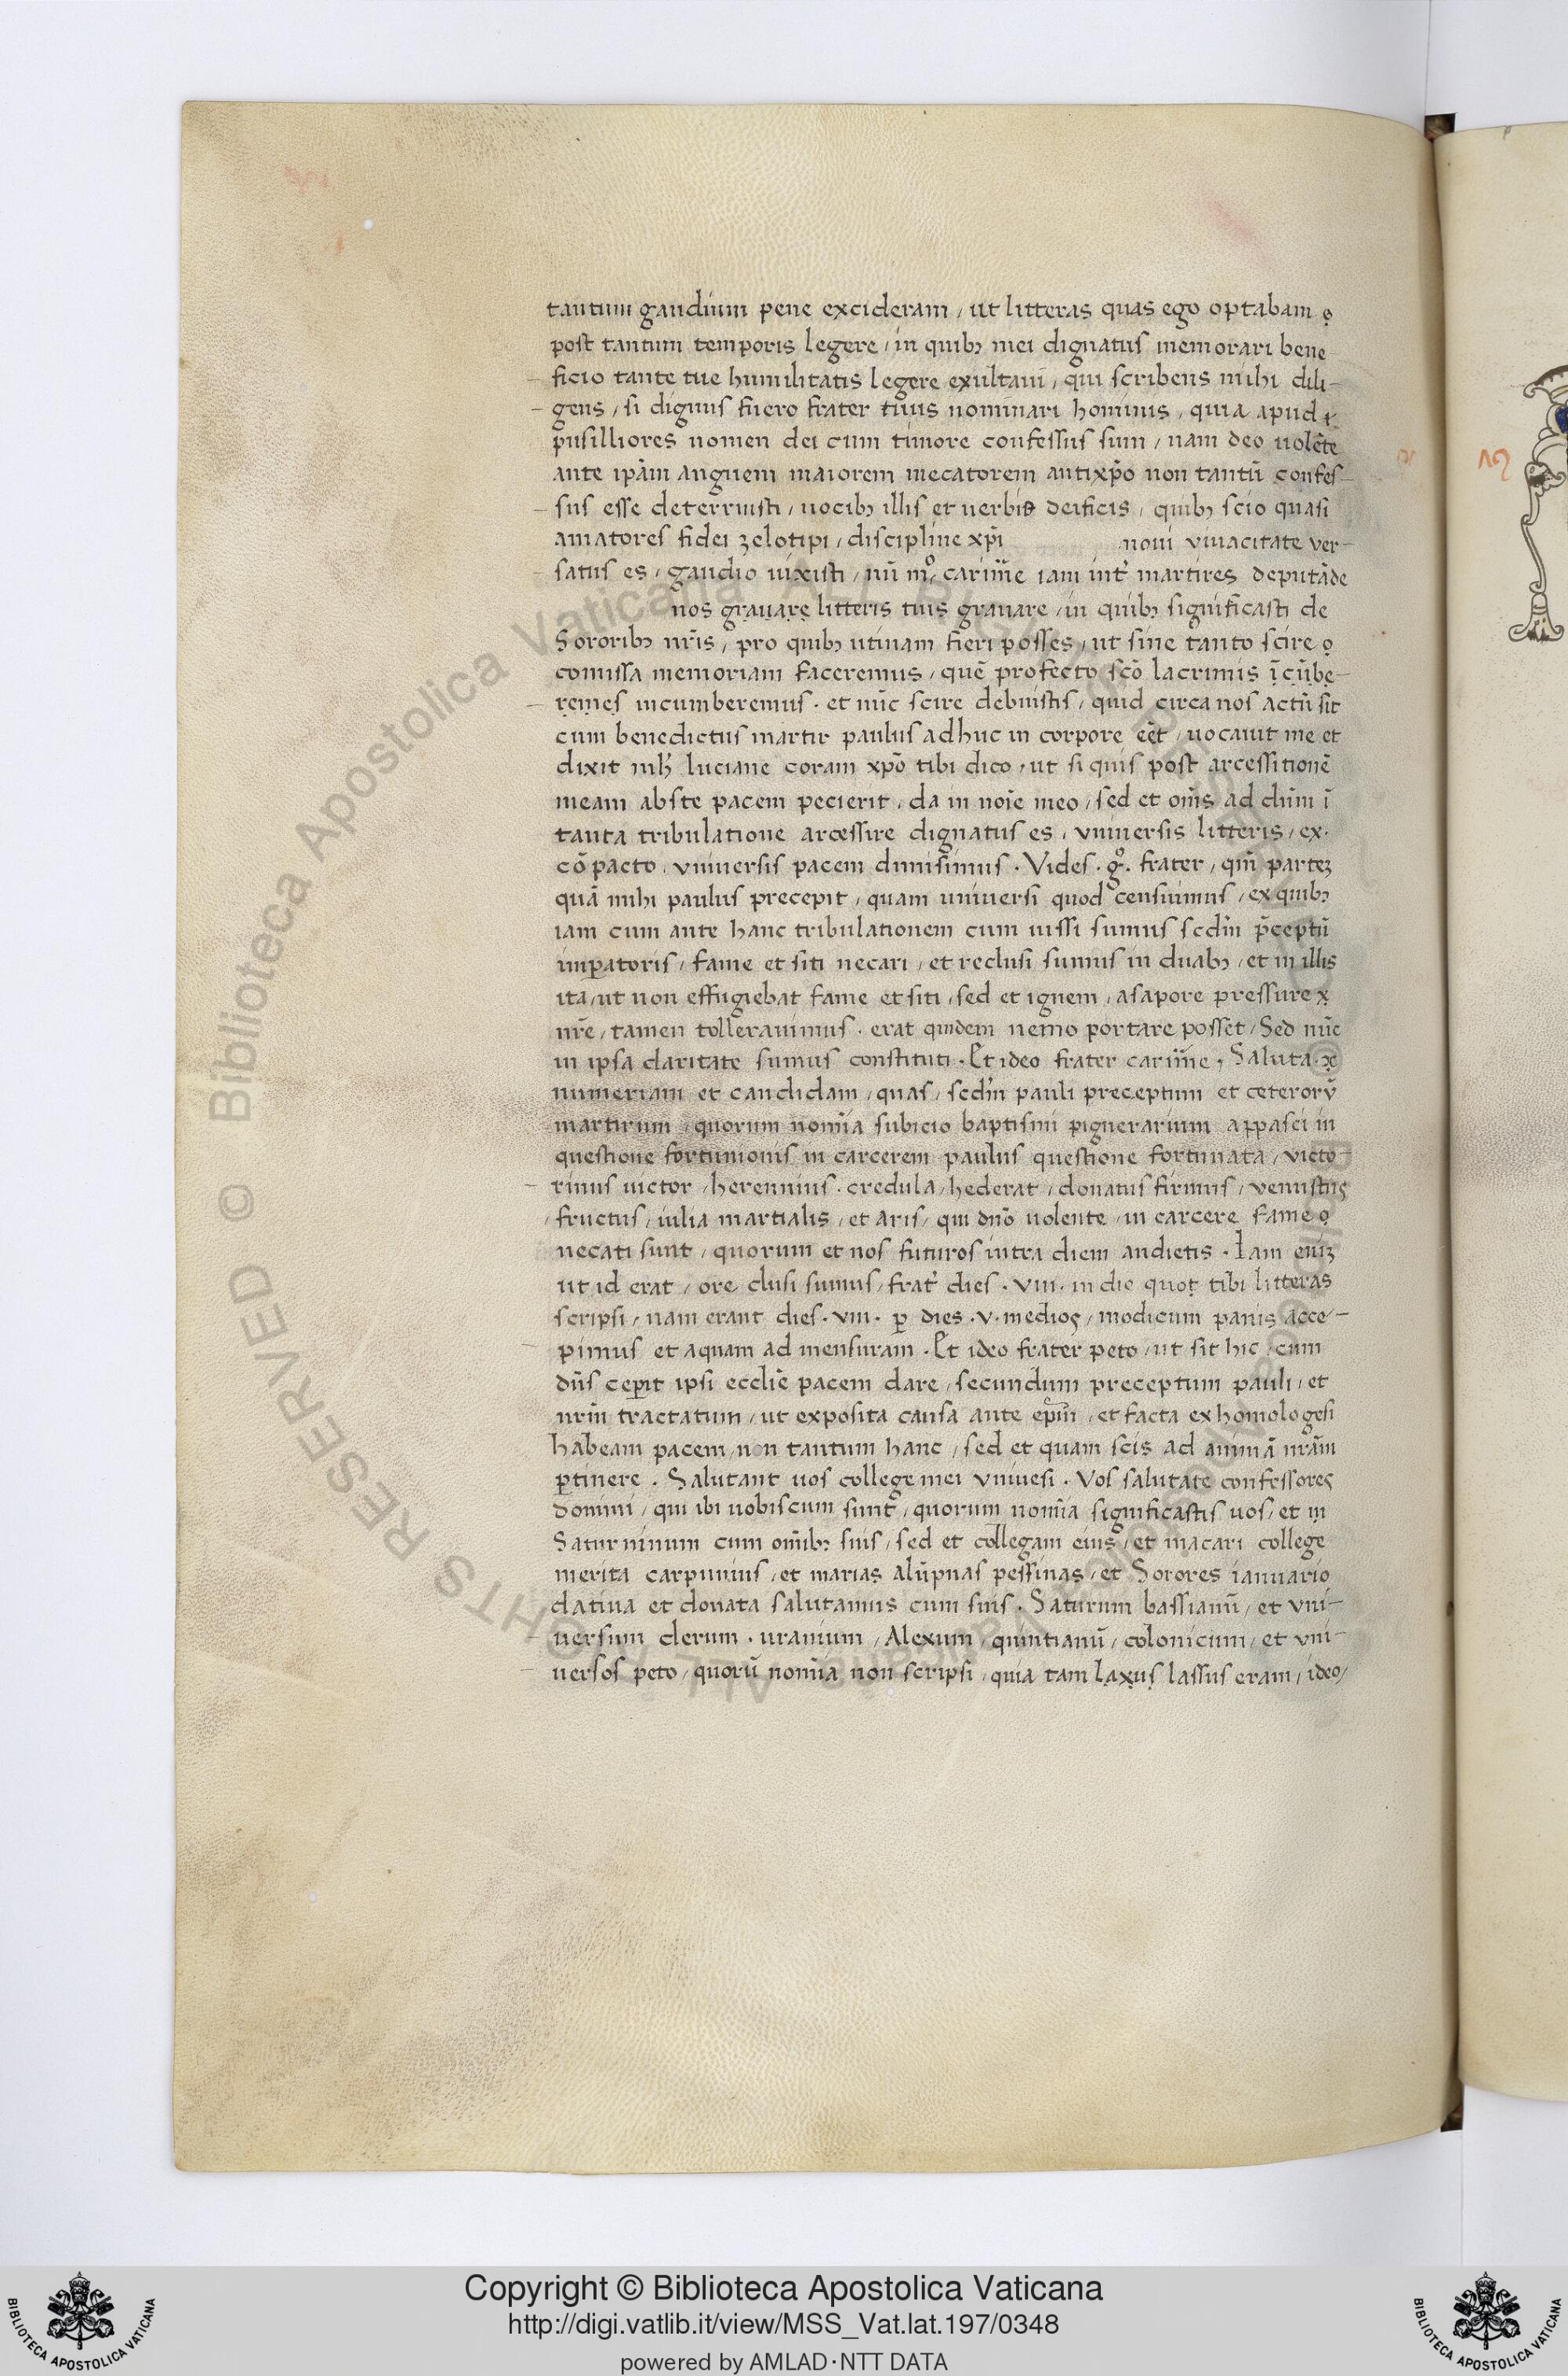 tantum gaudium pene excideram / ut litteras quas ego optabam
post tantum temporis legere / in quibꝫ mei dignatus memorari bene
ficio tante tue humilitatis legere exultaui / qui scribens mihi dili-
gens / si dignus fuero frater tuus nominari hominis / quia apud
pusilliores nomen dei cum timore confessus sum / nam deo uolēte
ante ipām anguem maiorem mecatorem antixp̄o non tantū confes-
sus esse deterruisti / uocibꝫ illis et uerbis deificis / quibꝫ scio quasi
amatores fidei zelotipi / discipline xp̄i noui viuacitate ver-
satus es / gaudio uixisti / nū mº carim̄e iam int̄ martires deputāde
nos grauare litteris tuis grauare / in quibꝫ significasti de
Sororibꝫ nr̄is / pro quibꝫ utinam fieri posses / ut sine tanto scire
comissa memoriam faceremus / quē profecto scō lacrimis īcūbe-
remes incumberemus · et nūc scire debuistis / quid circa nos actū sit
cum benedictus martir paulus adhuc in corpore eēt / uocauit me et
dixit mh̄ luciane coram xp̄o tibi dico / ut si quis post arcessitionē
meam abste pacem pecierit / da in noīe meo / sed et om̄s ad dūm ī
tanta tribulatione arcessire dignatus es / vniuersis litteris / ex·
cō pacto / vniuersis pacem dimisimus · Vides · gº frater / qm̄ parteꝫ
quā mihi paulus precepit / quam uniuersi quod censuimus / ex quibꝫ
iam cum ante hanc tribulationem cum iussi sumus scd̄m p̄ceptū
imp̄atoris / fame et siti necari / et reclusi sumus in duabꝫ / et in illis
ita / ut non effugiebat fame et siti / sed et ignem / asapore pressure
nr̄e / tamen tollerauimus · erat quidem nemo portare posset / Sed nūc
in ipsa claritate sumus constituti · Et ideo frater carim̄e / Saluta
numeriam et candidam / quas / scd̄m pauli preceptum et ceterorū
martirum / quorum nom̄ia subicio baptismi pignerarium appasci in
questione fortunionis in carcerem paulus questione fortunata / victo
rinus uictor / herennius · credula / hederat / donatus firmus / venustus
fructus / iulia martialis / et aris / qui dn̄o uolente / in carcere fame
necati sunt / quorum et nos futuros intra diem audietis · Iam eniꝫ
ut id erat / ore clusi sumus / frat̄ dies · viii · in die quot tibi litteras
scripsi / nam erant dies · viii · ꝑ dies · v · medios / modicum panis acce-
pimus et aquam ad mensuram · Et ideo frater peto / ut sit hic / cum
dūs ceꝑit ipsi ecclīe pacem dare / secundum preceptum pauli / et
nrm̄ tractatum / ut exposita causa ante ep̄m / et facta exhomologesi
habeam pacem / non tantum hanc / sed et quam scis ad animā nrām
ꝑtinere · Salutant uos college mei vniuesi · Vos salutate confessores
domini / qui ibi uobiscum sunt / quorum nom̄ia significastis uos / et in
Saturninum cum om̄ibꝫ suis / sed et collegam eius / et macari college
merita carpunius / et marias alūpnas pessinas / et Sorores ianuario
datiua et donata salutamus cum suis · Saturum bassianū / et vni-
uersum clerum · uranium / Alexum / quintianū / colonicum / et vni-
uersos peto / quorū nom̄ia non scripsi / quia tam laxus lassus eram / ideo /
Copyright © Biblioteca Apostolica Vaticana
http://digi.vatlib.it/view/MSS_Vat.lat.197/0348
powered by AMLAD·NTT DATA